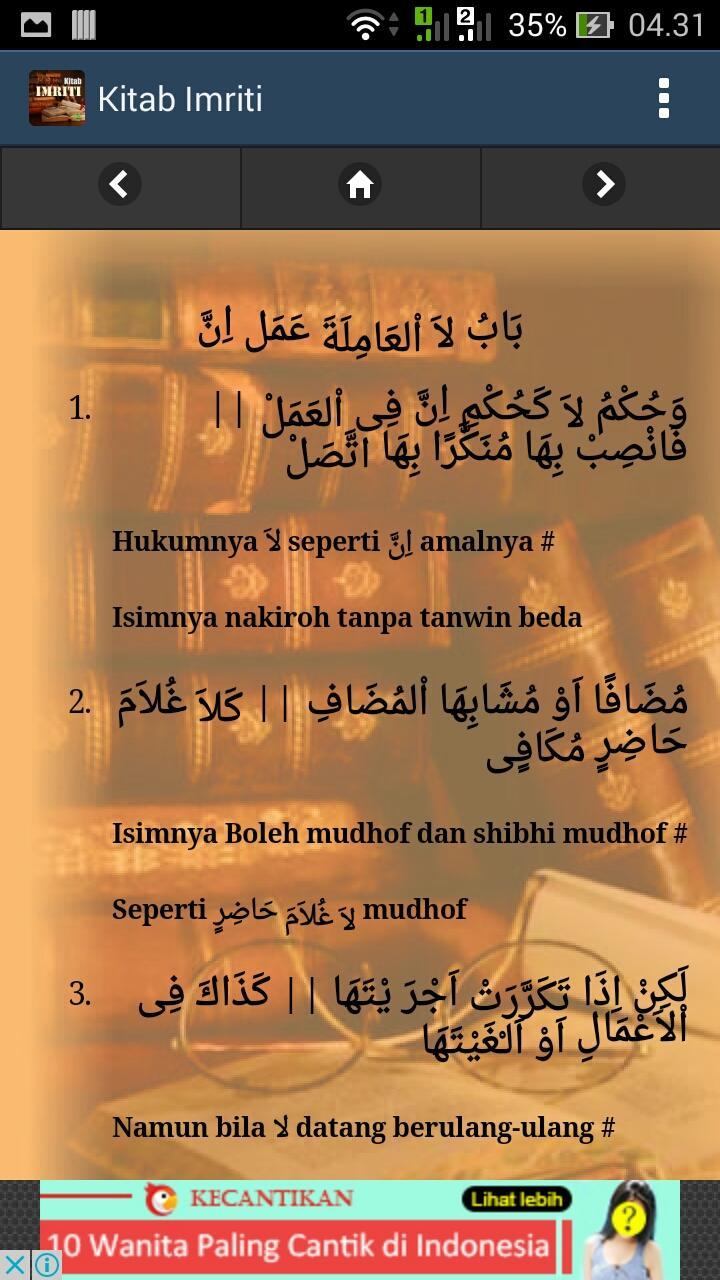 35% 04.31
Kitab IMRITI
Kitab Imriti
بَابُ لاَ اْلعَامِلَةَ عَمَل اِنَّ
1. وَحُكْمُ لاَ كَحُكْمِ اِنَّ فِى اْلعَمَلْ ||
فَانْصِبْ بِهَا مُنَكَّرًا بِهَا اتَّصَلْ
Hukumnya لاَ seperti اِنَّ amalnya #
Isimnya nakiroh tanpa tanwin beda
2. مُضَافًا اَوْ مُشَابِهَا اْلمُضَافِ || كَلاَ غُلاَمَ
حَاضِرٍ مُكَافِى
Isimnya Boleh mudhof dan shibhi mudhof #
Seperti لاَ غُلاَمَ حَاضِرٍ mudhof
3. لَكِنْ اِذَا تَكَرَّرَتْ اَجْرَ يْتَهَا || كَذَاكَ فِى
اْلاَعْمَالِ اَوْ اَلْغَيْتَهَا
Namun bila لا datang berulang-ulang #
KECANTIKAN Lihat lebih
10 Wanita Paling Cantik di Indonesia
?